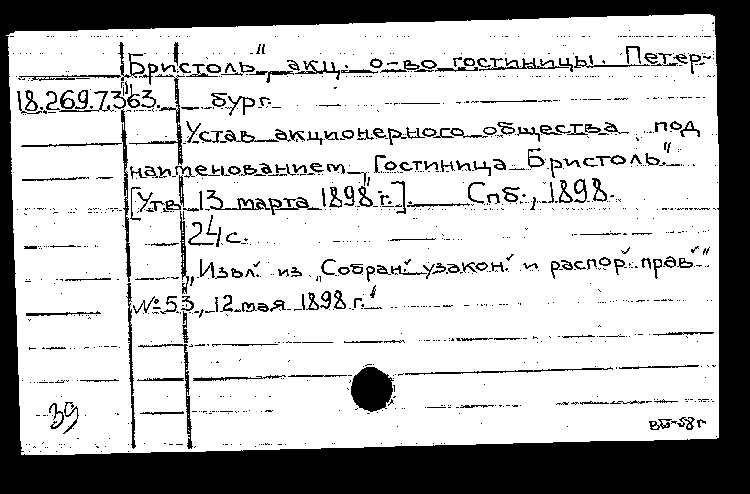 Бристоль", акц. о-во гостиницы. Петер-
18.269.7.363. бург.
Устав акционерного общества под
наименованием „Гостиница Бристоль."
[Утв 13 марта 1898 г.]. Спб., 1898.
24 с.
„Извл. из „Собран. узакон. и распор. прав."
№ 53, 12 мая 1898 г."
39